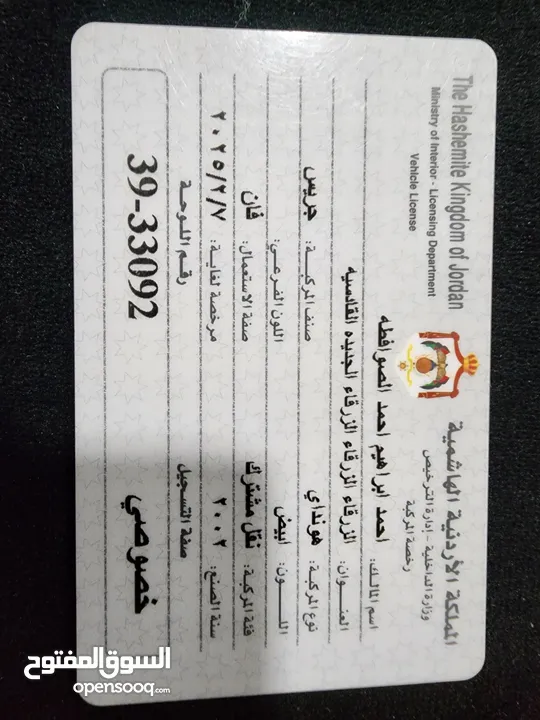 The Hashemite Kingdom of Jordan
Ministry of Interior - Licensing Department
Vehicle License
المملكة الأردنية الهاشمية
وزارة الداخلية - إدارة الترخيص
رخصة المركبة
اسم المالك: احمد ابراهيم احمد الصوافطه
العنوان: الزرقاء الزرقاء الجديده القادسيه
نوع المركبة: هونداي صنف المركبة: جريس
اللون: ابيض اللون الفرعي:
فئة المركبة: نقل مشترك صفة الاستعمال: فان
سنة الصنع: ٢٠٠٢ مرخصة لغاية: ٢٠٢٥/٢/٧
صفة التسجيل رقم اللوحة
خصوصي 39-33092
السوق المفتوح
opensooq.com